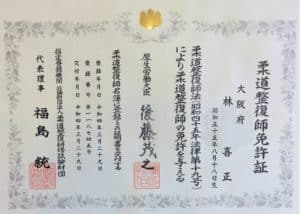 柔道整復師免許証
大阪府
林喜正
昭和五十五年八月十八日生
柔道整復師法(昭和四十五年法律第十九号)
により柔道整復師の免許を与える
厚生労働大臣 後藤茂之
柔道整復師名簿に登録したことを証する
登録年月日 令和四年三月二十九日
登録番号
交付年月日 令和四年三月二十九日
代表理事 福島統